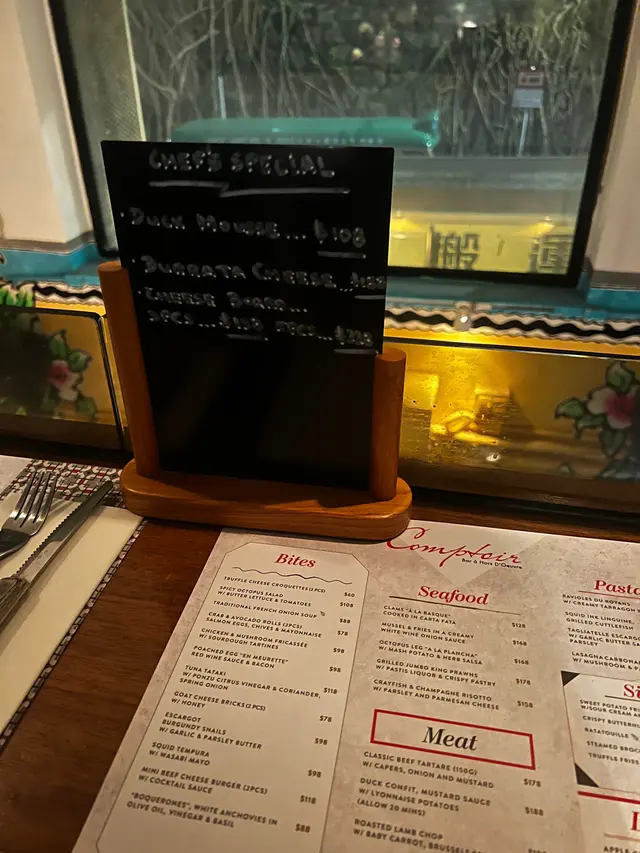 CHEF'S SPECIAL
• DUCK MOUSSE.... $108
• BURRATA CHEESE...
• CHEESE BOARD...
搬 運
Comptoir
Bar & Hors D'Oeuvre
Bites
TRUFFLE CHEESE CROQUETTES (2PCS) $60
SPICY OCTOPUS SALAD $108
W/ BUTTER LETTUCE & TOMATOES
TRADITIONAL FRENCH ONION SOUP $88
CRAB & AVOCADO ROLLS (2PCS) $78
SALMON EGGS, CHIVES & MAYONNAISE
CHICKEN & MUSHROOM FRICASSÉE $98
W/ SOURDOUGH TARTINES
POACHED EGG "EN MEURETTE" $98
RED WINE SAUCE & BACON
TUNA TATAKI $118
W/ PONZU CITRUS VINEGAR & CORIANDER,
SPRING ONION
GOAT CHEESE BRICKS (2 PCS) $78
W/ HONEY
ESCARGOT $98
BURGUNDY SNAILS
W/ GARLIC & PARSLEY BUTTER
SQUID TEMPURA $98
W/ WASABI MAYO
MINI BEEF CHEESE BURGER (2PCS) $118
W/ COCKTAIL SAUCE
"BOQUERONES", WHITE ANCHOVIES IN $88
OLIVE OIL, VINEGAR & BASIL
Seafood
CLAMS "A LA BASQUE" $128
COOKED IN CARTA FATA
MUSSEL & FRIES IN A CREAMY $168
WHITE WINE ONION SAUCE
OCTOPUS LEG "A LA PLANCHA" $168
W/ MASH POTATO & HERB SALSA
GRILLED JUMBO KING PRAWNS $178
W/ PASTIS LIQUOR & CRISPY PASTRY
CRAYFISH & CHAMPAGNE RISOTTO $158
W/ PARSLEY AND PARMESAN CHEESE
Meat
CLASSIC BEEF TARTARE (150G) $178
W/ CAPERS, ONION AND MUSTARD
DUCK CONFIT, MUSTARD SAUCE $188
W/ LYONNAISE POTATOES
(ALLOW 20 MINS)
ROASTED LAMB CHOP
W/ BABY CARROT,
Pasta
RAVIOLES DU ROYANS
W/ CREAMY
SQUID INK LINGUINE,
GRILLED CUTTLEFISH
TAGLIATELLE
W/ GARLIC BUTTER
LASAGNA
W/ MUSHROOM &
SWEET POTATO
W/SOUR CREAM
CRISPY
RATATOUILLE
STEAMED
TRUFFLE FRIES